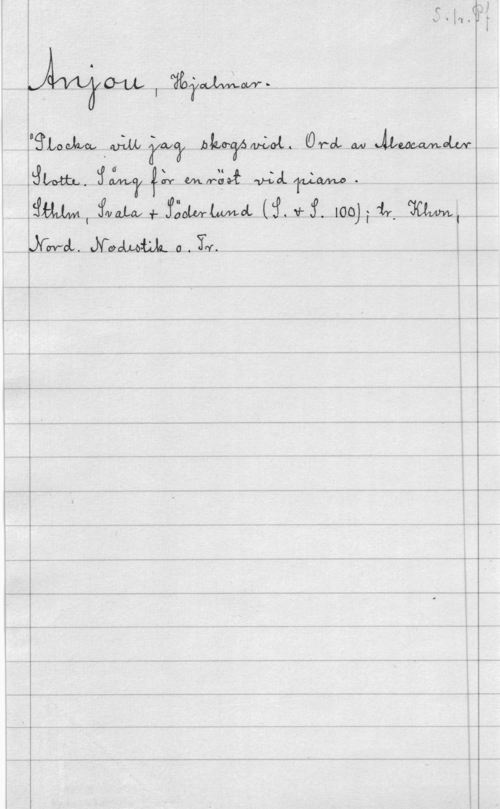 S. 1r. Pf
Anjou, Hjalmar.
"Plocka vill jag skogsviol. Ord av Alexander
Slotte. Sång för en röst vid piano.
Sthlm, Svala + Söderlund (S. + S. 100); tr. Khvn,
Nord. Nodestik o. Tr.